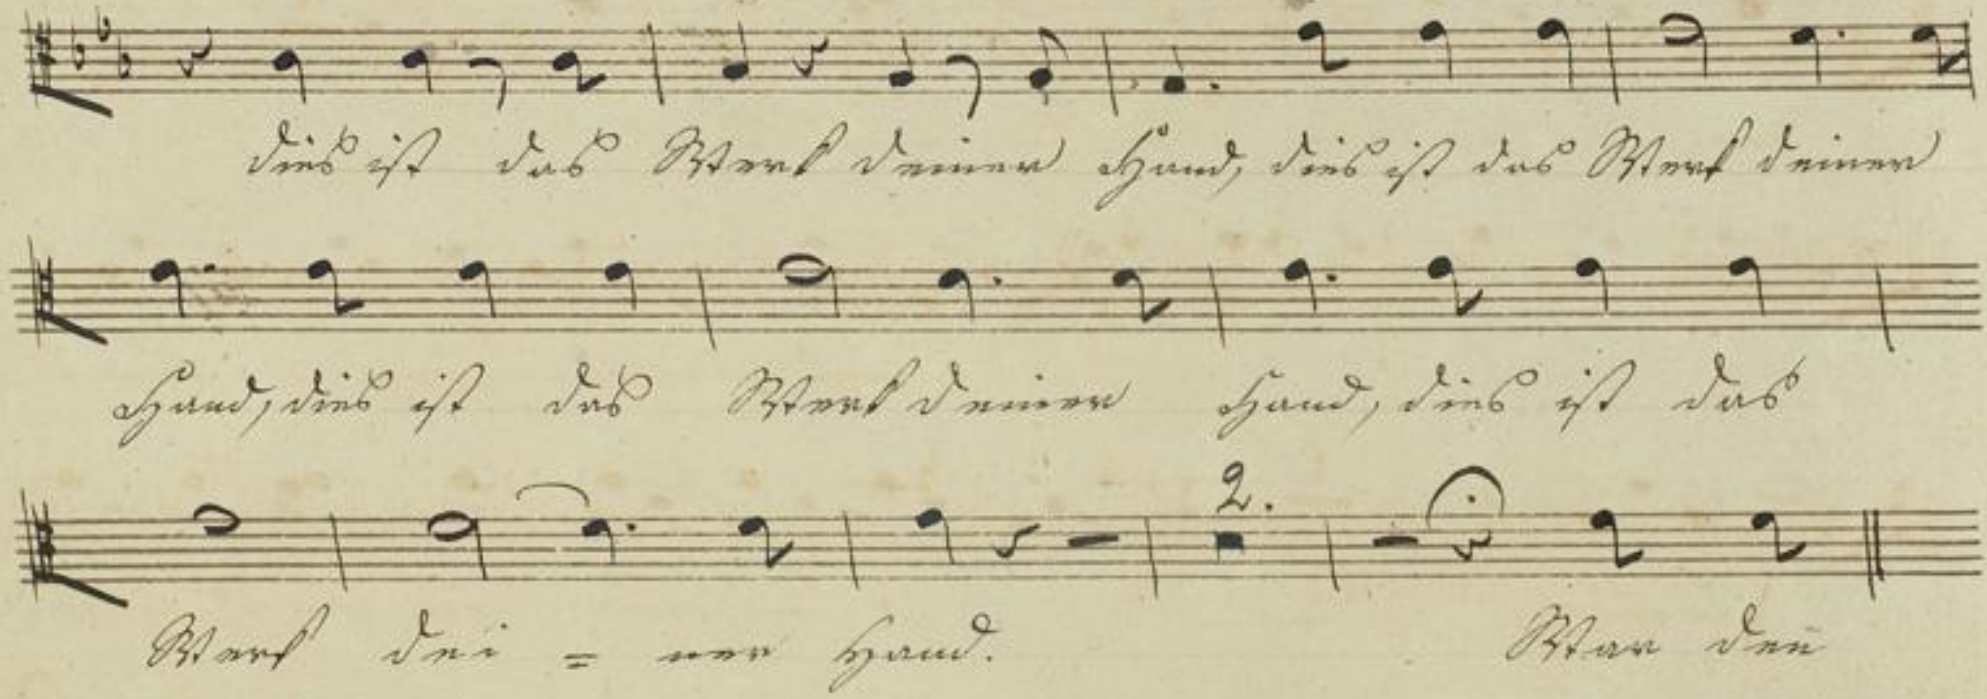 dies ist das Werk deiner Hand, dies ist das Werk deiner
Hand, dies ist das Werk deiner Hand, dies ist das
2.
Werk dei = ner Hand. War den̅